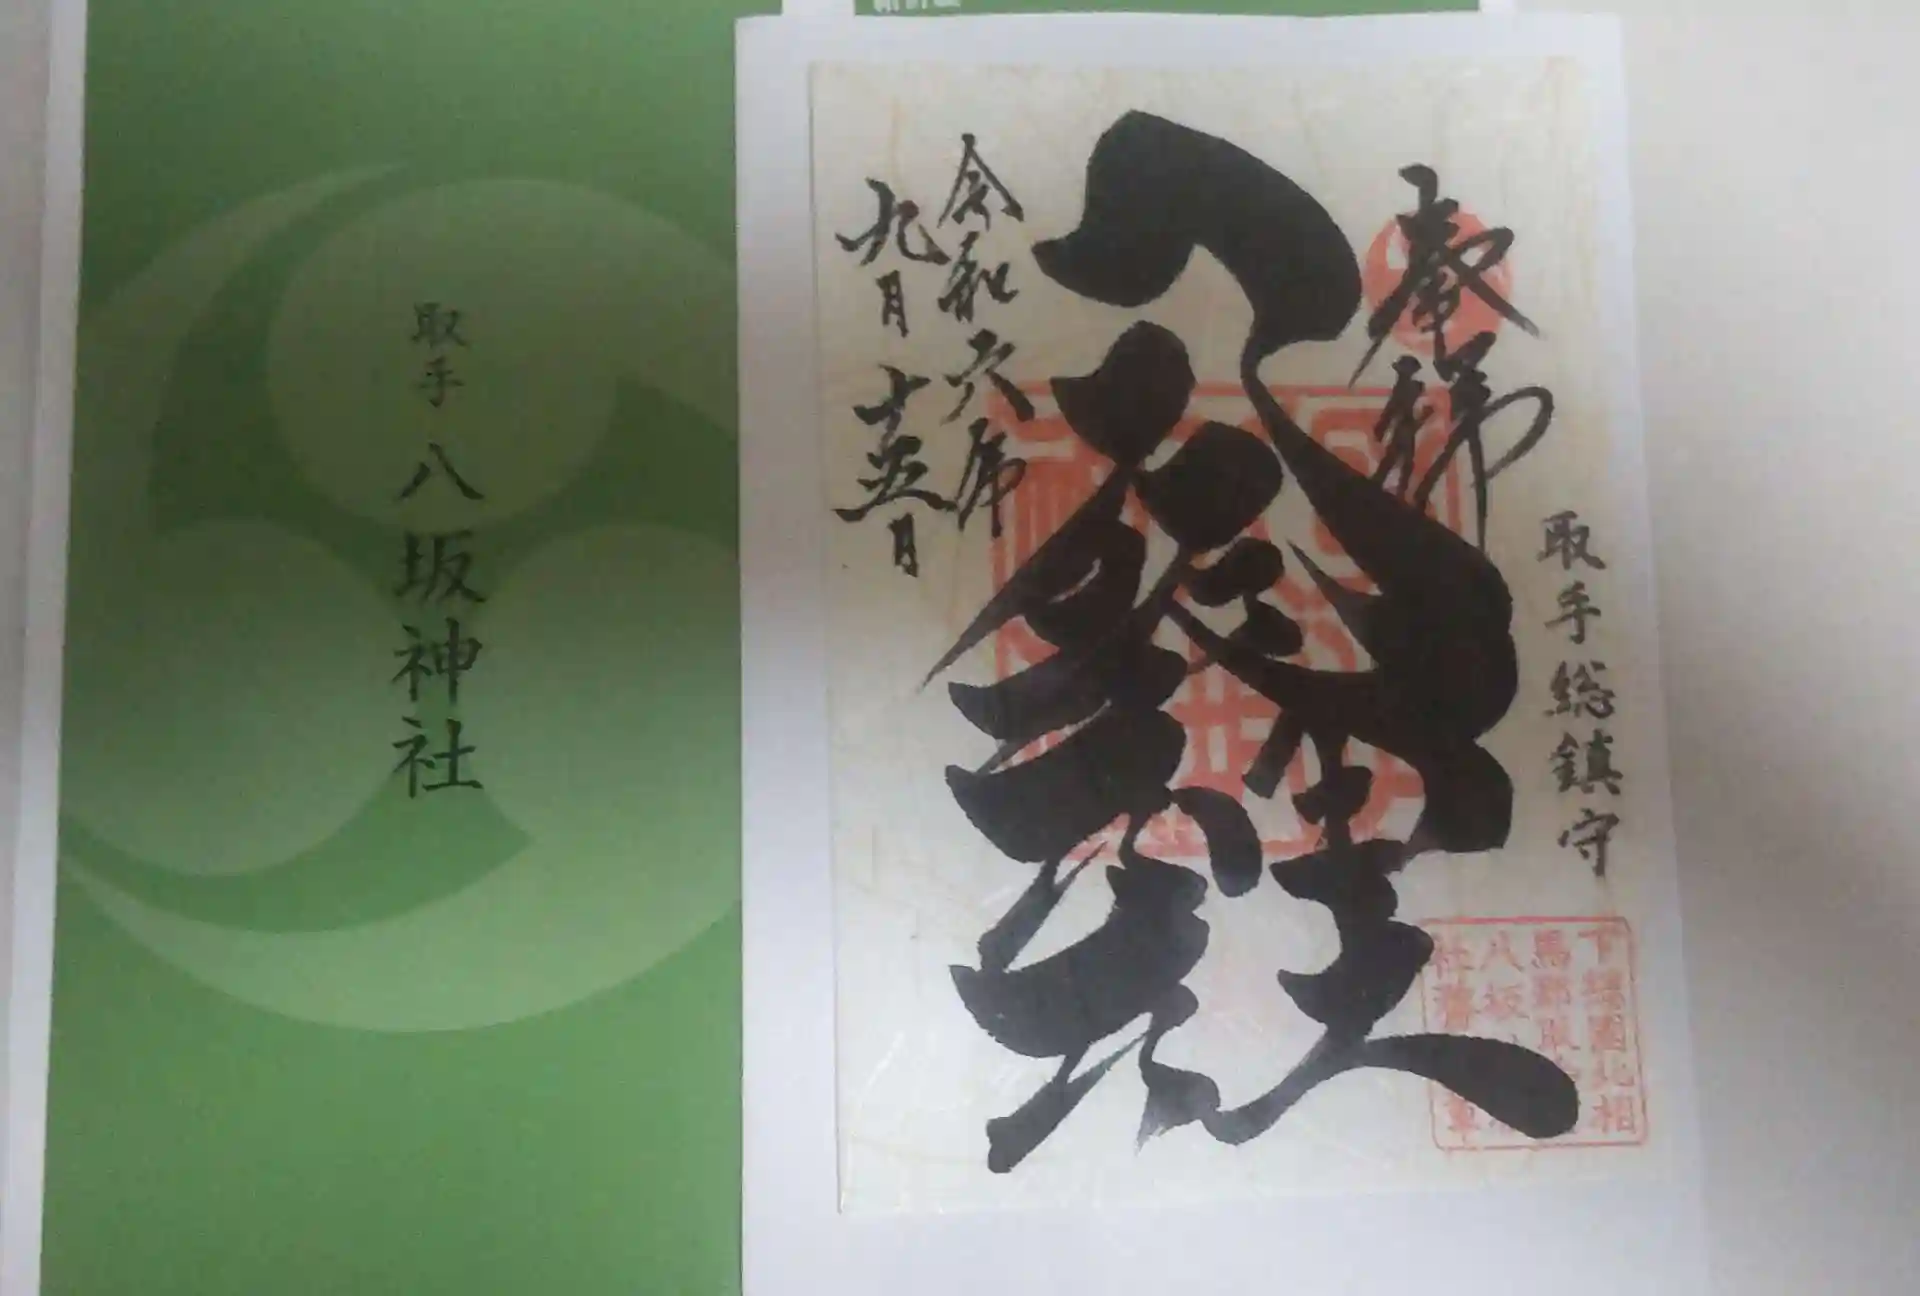 取手 八坂神社
奉拝
取手総鎮守
八坂神社
令和六年
九月十五日
下総國北相
馬郡取
八坂
社